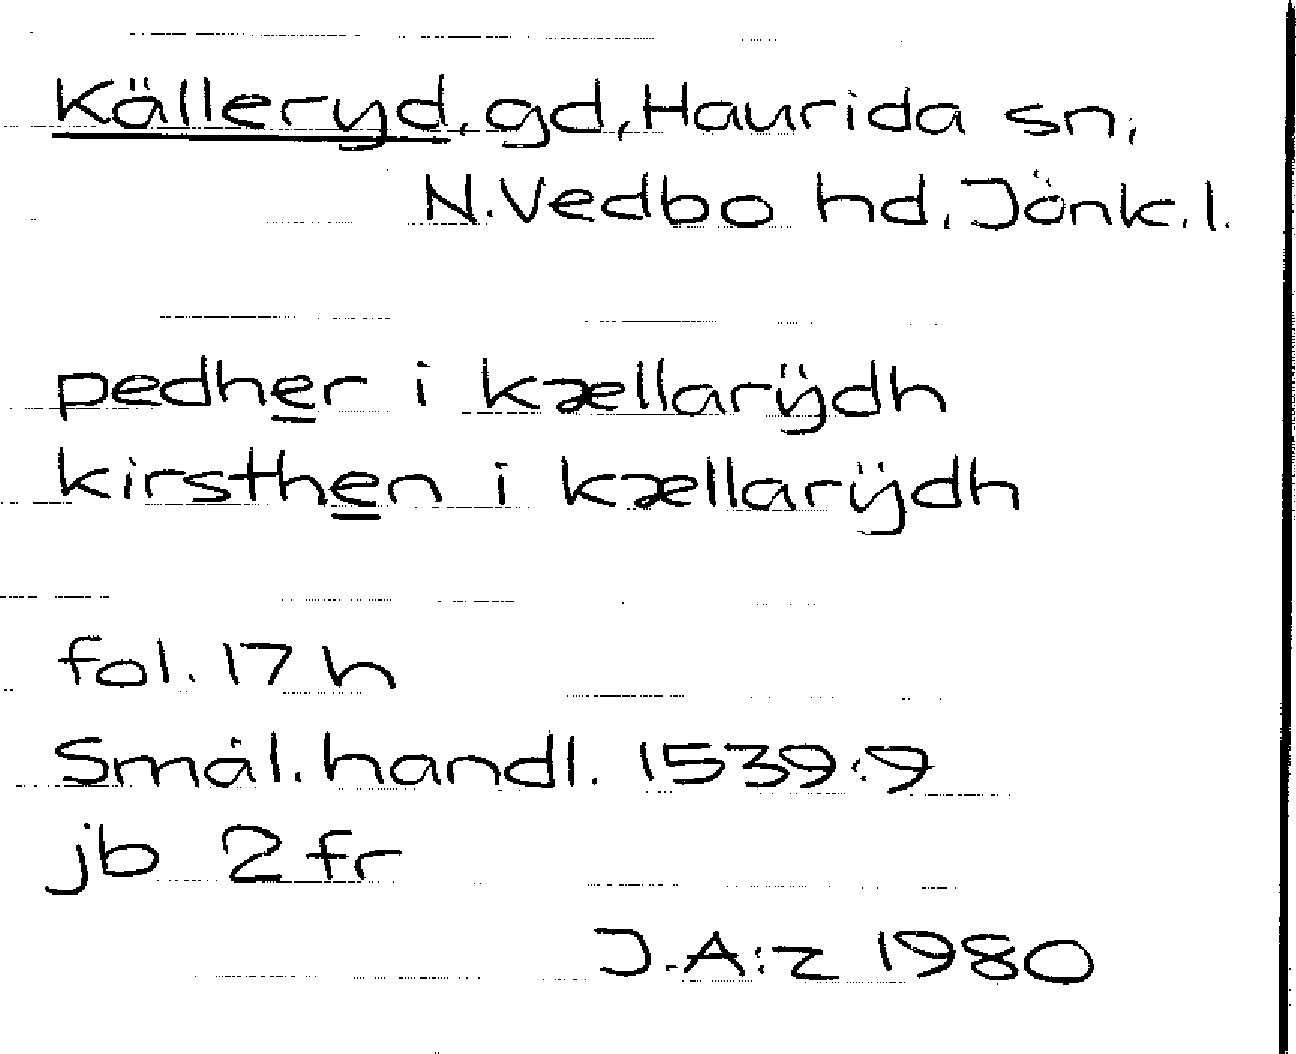 Källeryd, gd, Haurida sn,
N. Vedbo hd, Jönk. l.
pedher i kællarÿdh
kirsthen i kællarÿdh
fol. 17 h
Smål. handl. 1539:9
jb 2 fr
J.A:z 1980